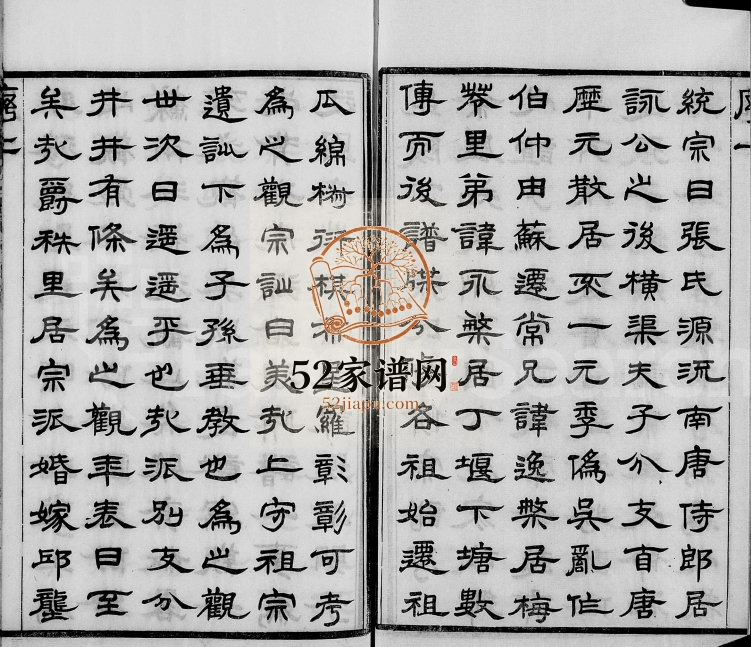 統宗曰張氏源流南唐侍郎居
詠公之後橫渠夫子分支自唐
歷元散居不一元季偽吳亂作
伯仲由蘇遷常兄諱逸槃居梅
岑里弟諱永槃居丁堰下塘數
傳而後譜牒分各祖始遷祖
瓜綿棋羅彰彰可考
為之觀宗訓曰美哉上守祖宗
遺訓下為子孫垂教也為之觀
世次曰遥遥乎也哉派別支分
井井有條矣為之觀年表曰至
矣哉爵秩里居宗派婚嫁邱壟
52家谱网
52jiapu.com